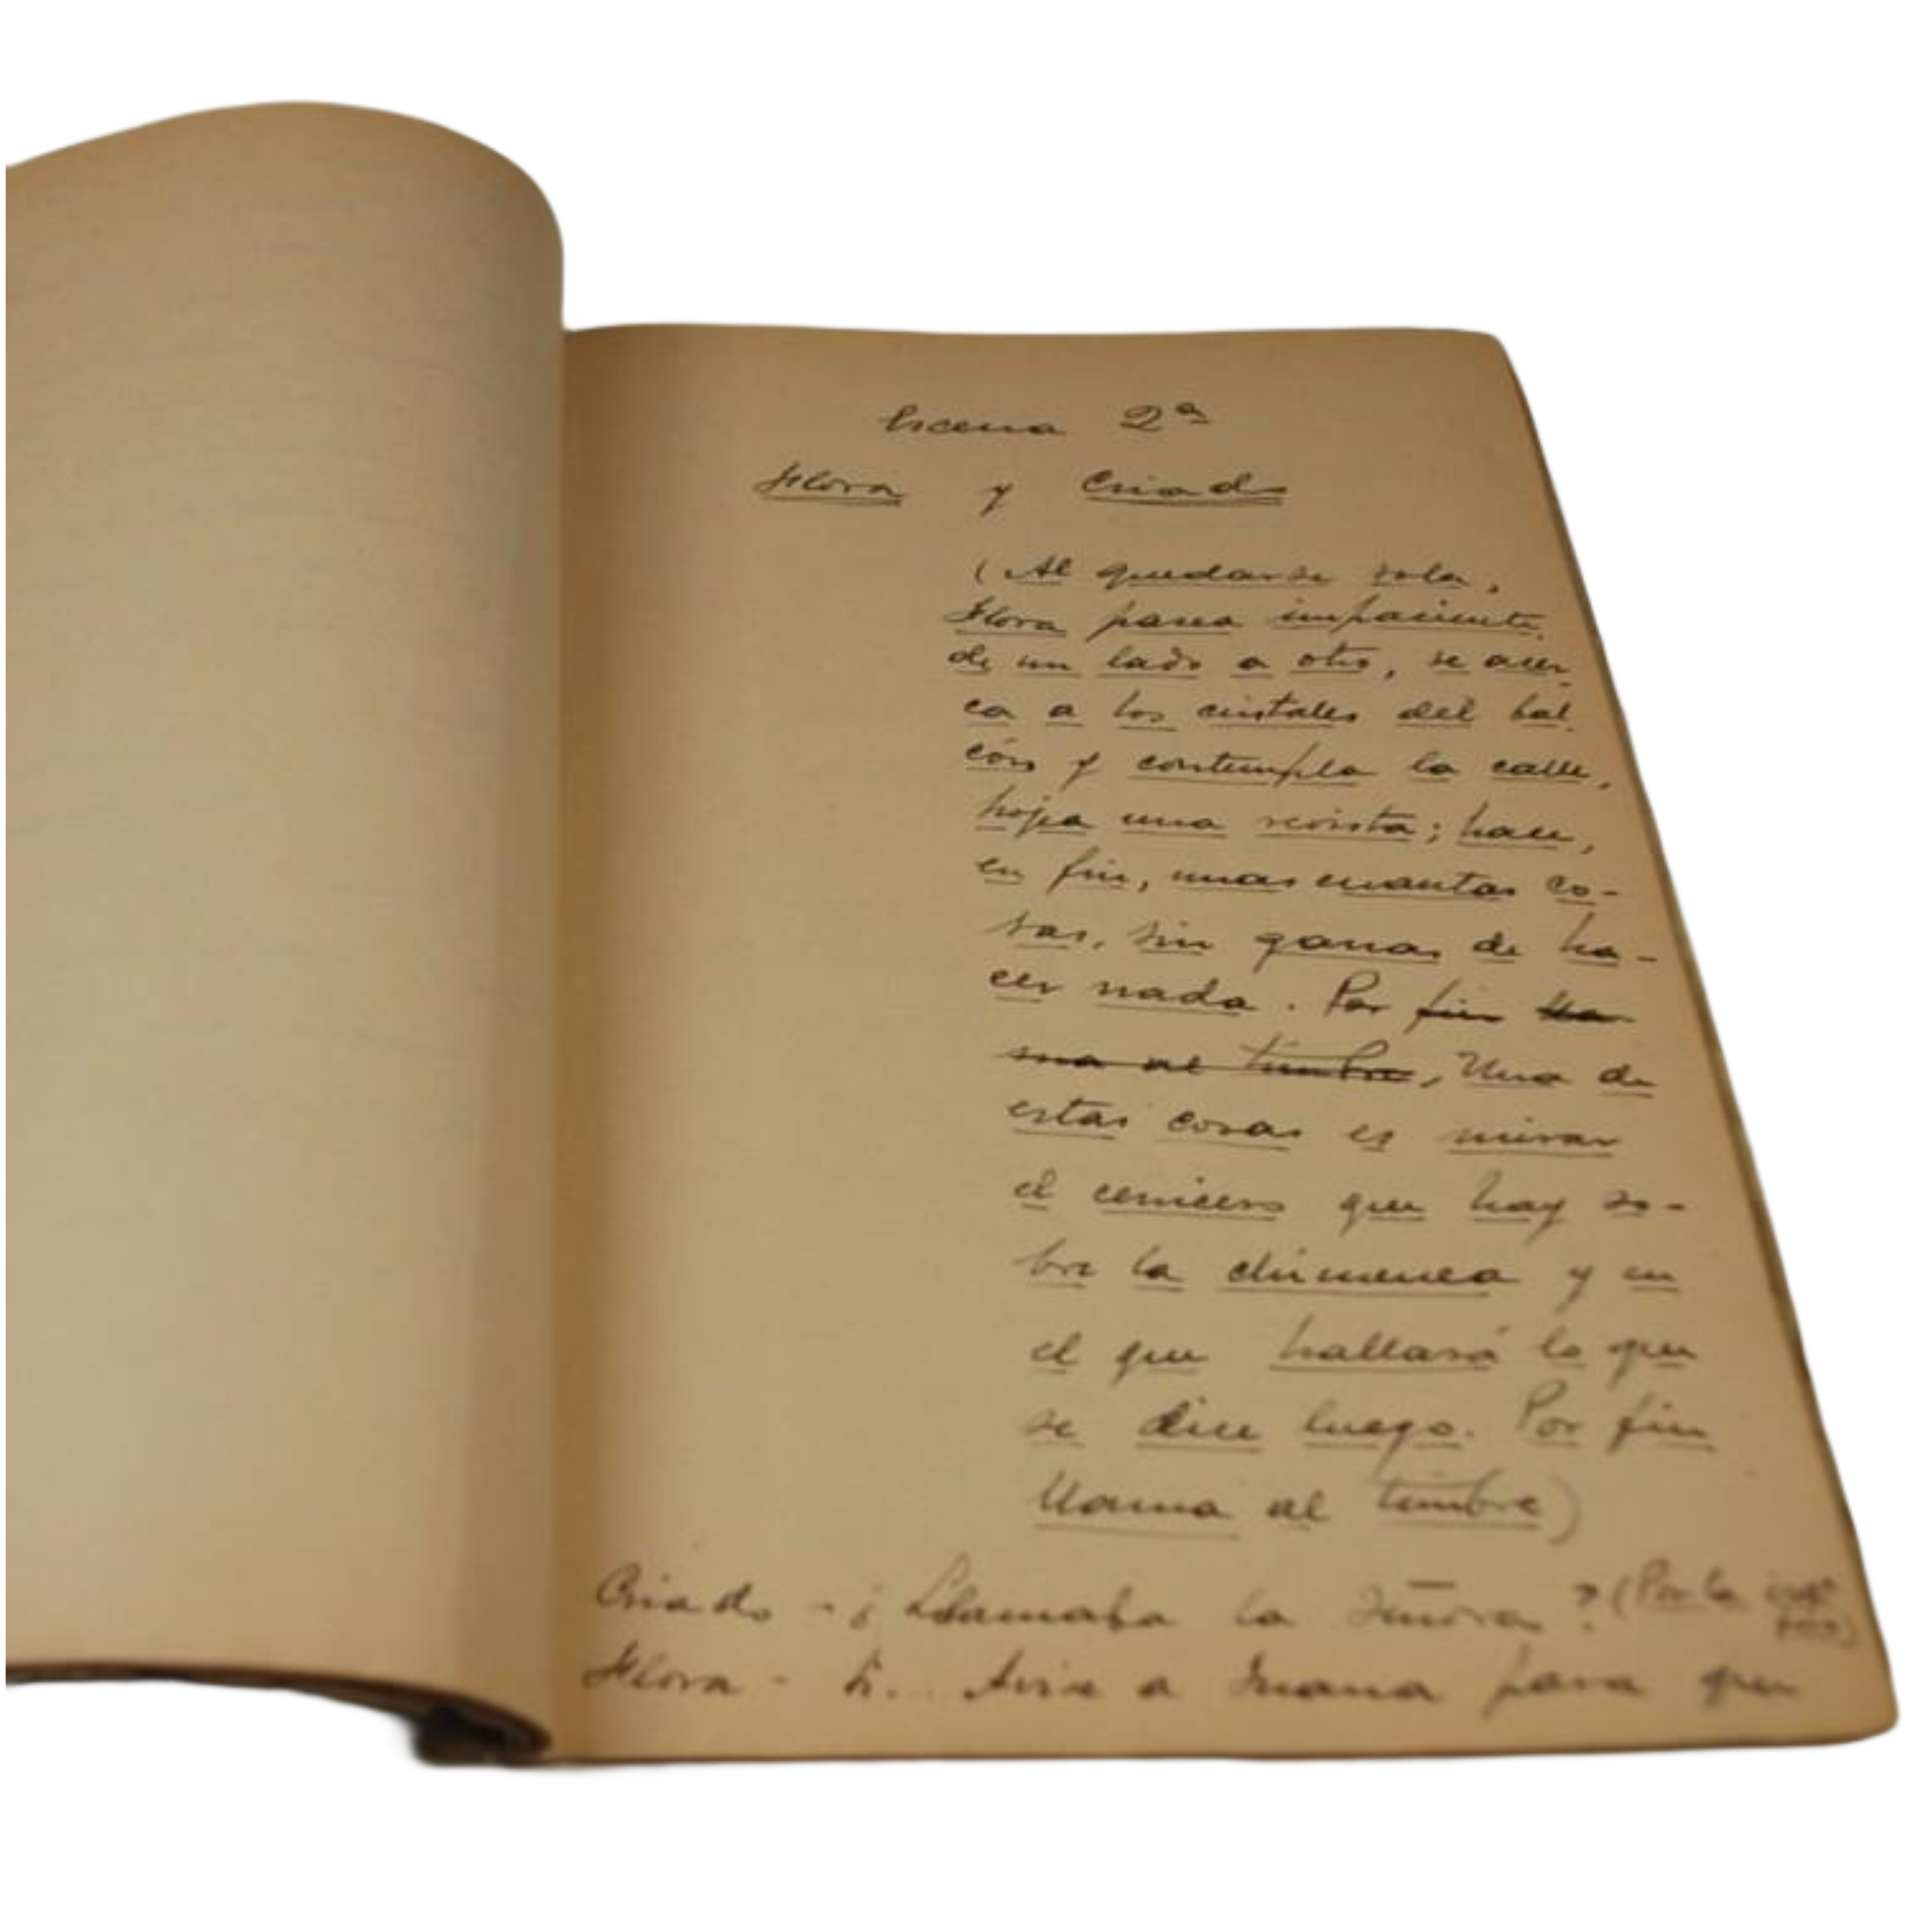 Escena 2ª
Flora y Criado
(Al quedarse sola,
Flora pasea impaciente
de un lado a otro, se acer-
ca a los cristales del bal-
cón y contempla la calle,
hojea una revista; hace,
en fin, unas cuantas co-
sas, sin ganas de ha-
cer nada. Por fin lla-
ma al timbre, Una de
estas cosas es mirar
el cenicero que hay so-
bre la chimenea y en
el que hallará lo que
se dice luego. Por fin
llama al timbre)
Criado - ¿Llamaba la señora? (Por la
Flora - Sí... Avise a Juana para que